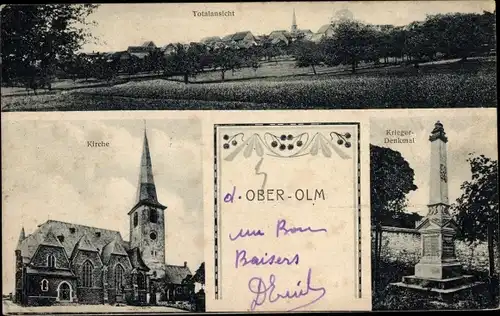 Totalansicht
Kirche
Krieger-
Denkmal
d. OBER-OLM
un Bon
Baisers